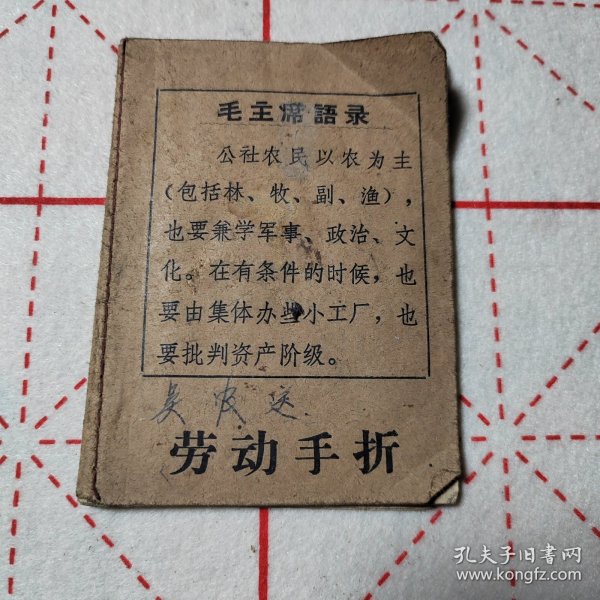 毛主席語录
公社农民以农为主
(包括林、牧、副、渔),
也要兼学军事、政治、文
化。在有条件的时候,也
要由集体办些小工厂,也
要批判资产阶级。
吴农运
劳动手折
孔夫子旧书网
www.kongfz.com